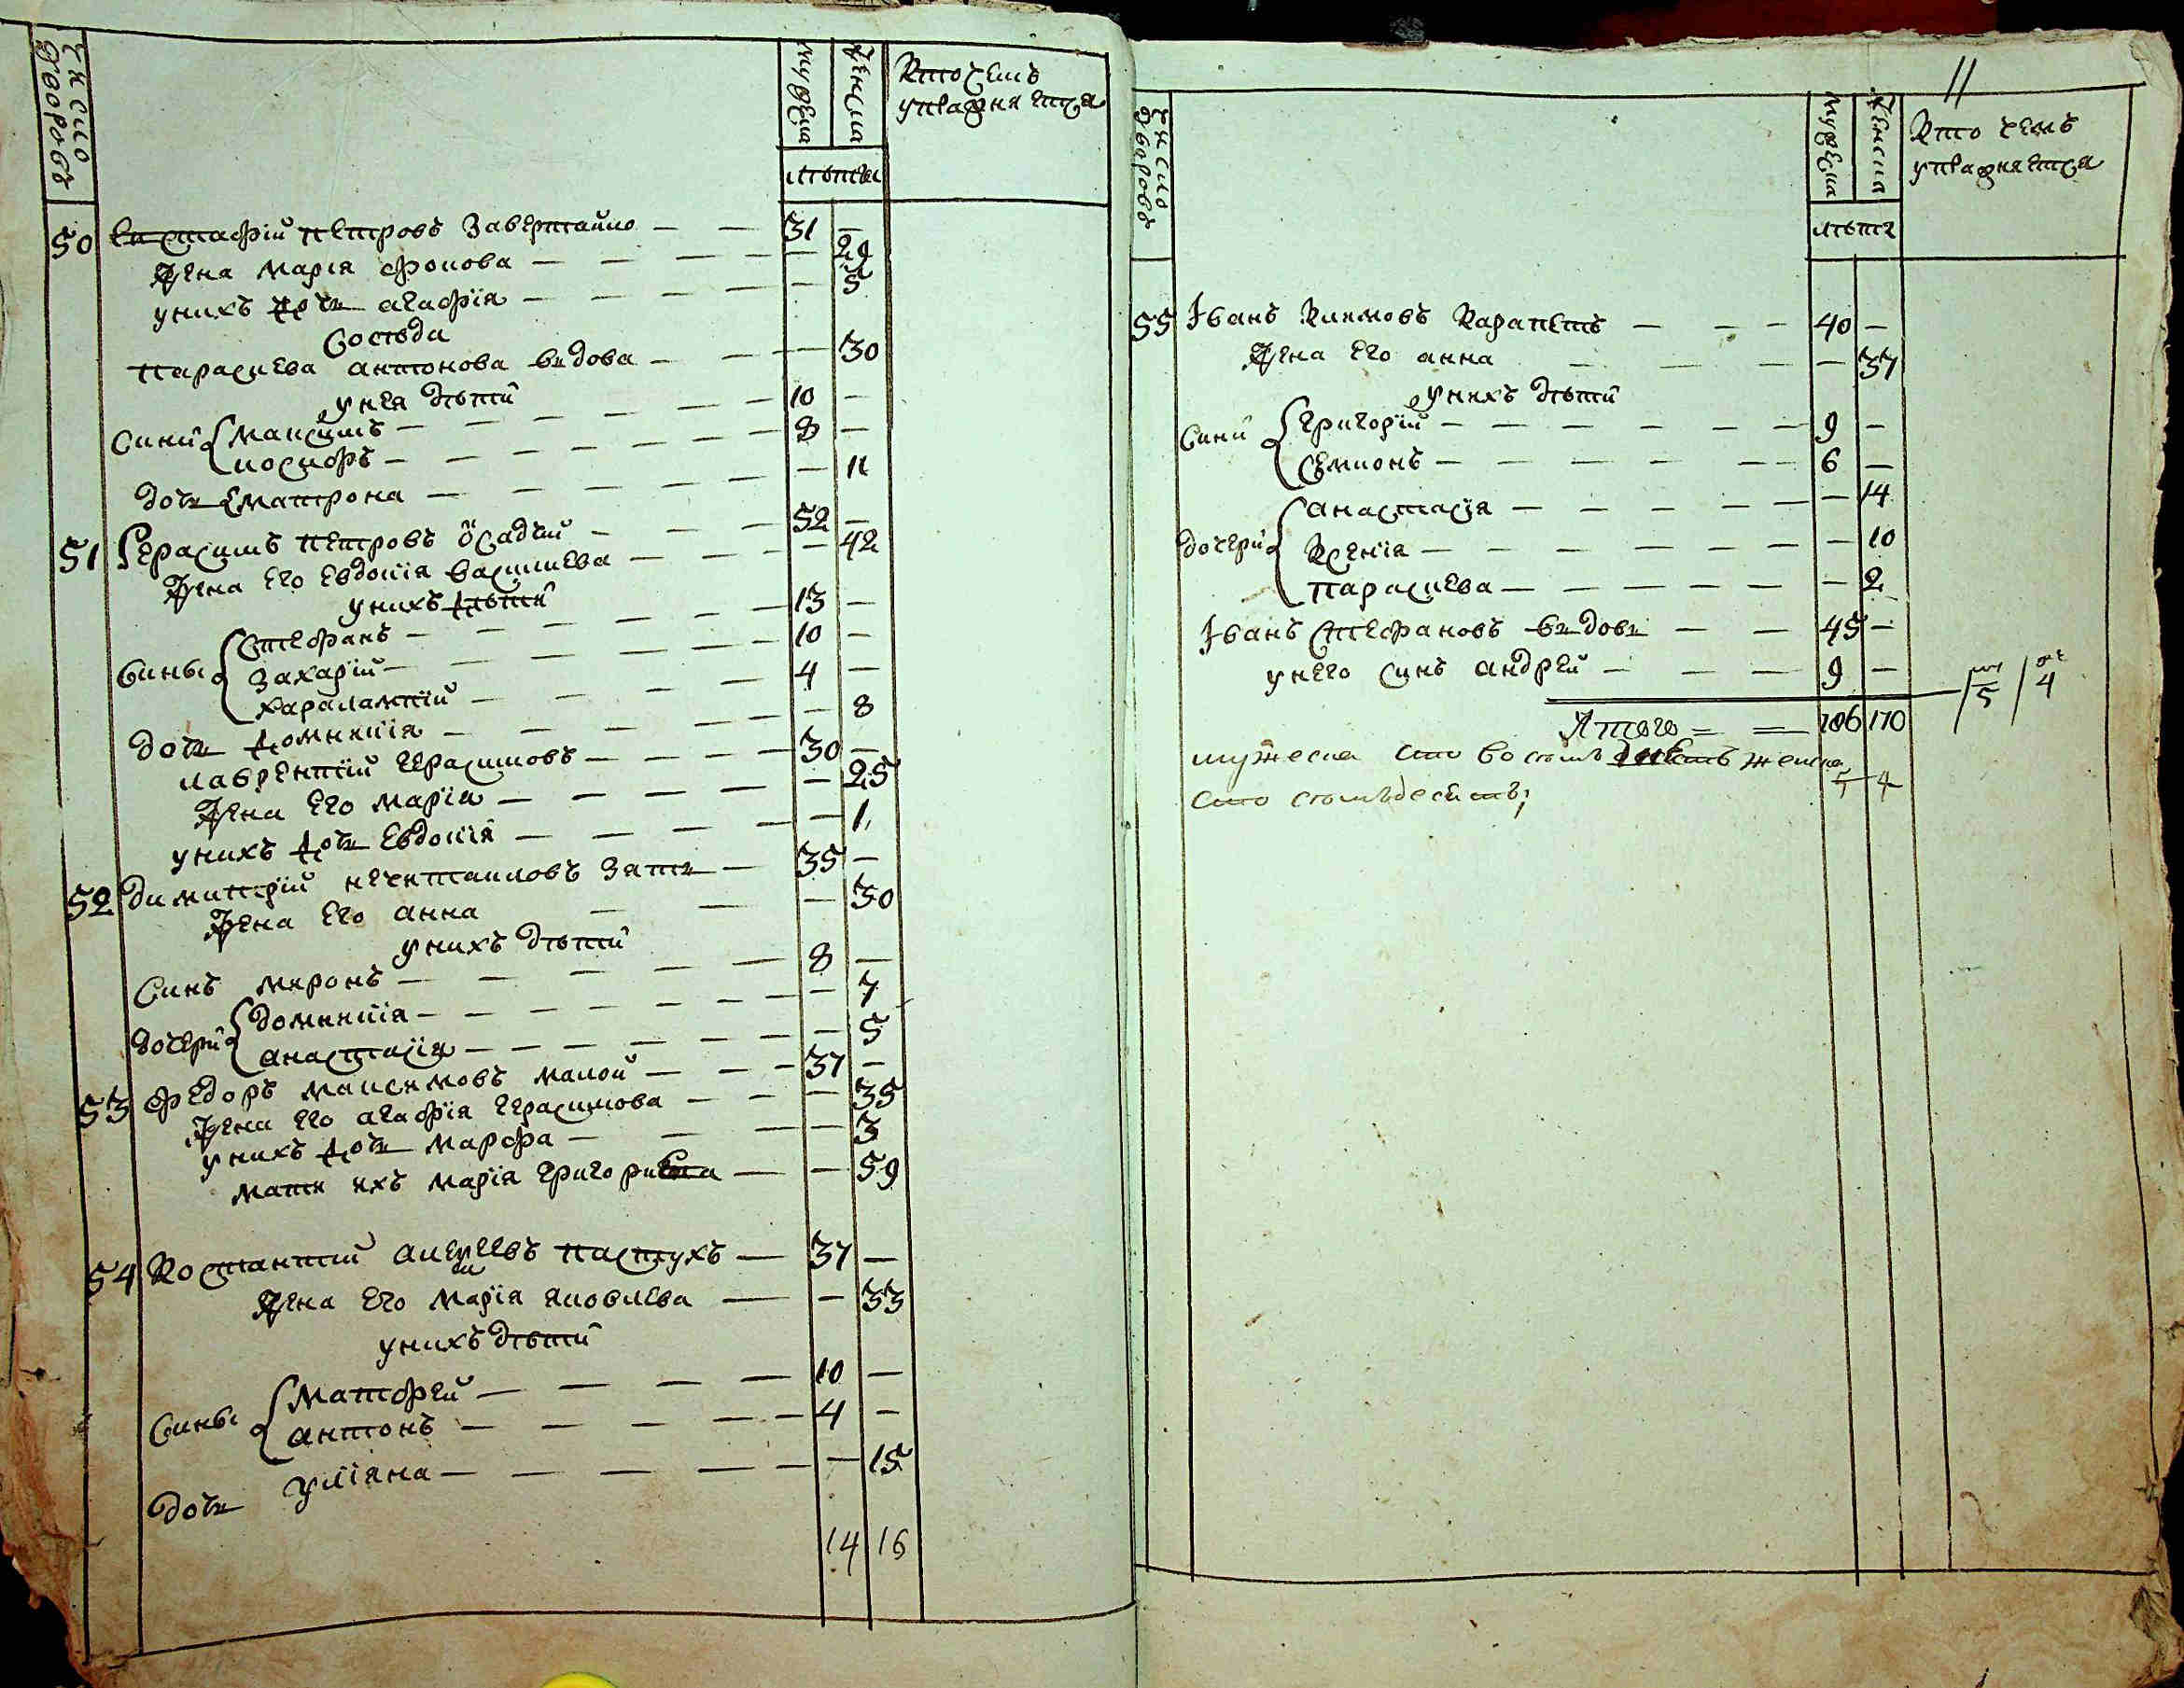 Число дворовъ
мужеска
женска
лѣта
Кто чемъ
упражняется
50 Евстафій Петровъ Завертайло — — 31 —
Жена Марія Фокова — — — — — 29
у нихъ дочь Агафія — — — — — 5
Соседи
Параскева Антонова вдова — — — 30
у нея дѣти
Сини Максимъ — — — — — — 10 —
Никифоръ — — — — — — 8 —
дочь Матрона — — — — — — 11
51 Герасимъ Петровъ Осадчій — — — 52 —
Жена его Евдокія Василиева — — — — 42
у нихъ дѣти
Сины Стефанъ — — — — — 13 —
Захарій — — — — — 10 —
Харалампій — — — — 4 —
дочь Домникія — — — — — 8
Лаврентій Герасимовъ — — — — 30 —
Жена его Марія — — — — — 25
у нихъ дочь Евдокія — — — — — 1
52 Димитрій Нечитайловъ зять — 35 —
Жена его Анна — — — 30
у нихъ дѣти
Синъ Миронъ — — — — — 8 —
дочери Домникія — — — — — — 7
Анастасія — — — — — — 5
53 Федоръ Максимовъ Малой — — — 37 —
Жена его Агафія Герасимова — — — 35
у нихъ дочь Марфа — — — — 3
мати ихъ Марія Григориева — — 59
54 Костантій Алексѣевъ Пастухъ — 37 —
Жена его Марія Яковлева — — 33
у нихъ дѣти
Сины Матфей — — — — 10 —
Антонъ — — — — — 4 —
дочь Уліяна — — — — — — 15
14 16
11
Число дворовъ
мужеска
женска
лѣта
Кто чемъ
упражняется
55 Іванъ Климовъ Карапетъ — — — 40 —
Жена его Анна — — — — 37
у нихъ дѣти
Сини Григорій — — — — — — 9 —
Семионъ — — — — — — 6 —
дочери Анастасія — — — — — — 14
Ксенія — — — — — — — 10
Параскева — — — — — — 2
Іванъ Стефановъ вдовъ — — 45 —
у него синъ Андрей — — — 9 —
5 / 4
Итого = = 186 170
мужеска сто восемъ женска
5 4
сто семъдесятъ;